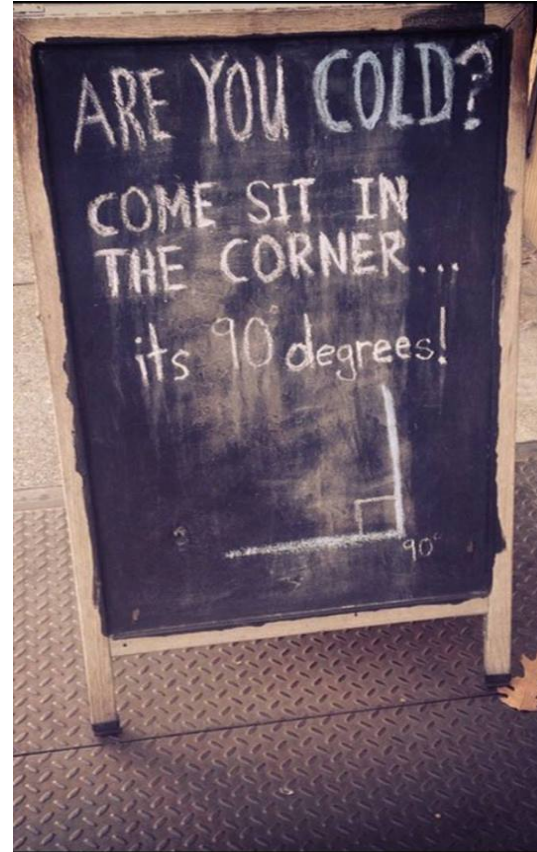 ARE YOU COLD?
COME SIT IN
THE CORNER...
its 90° degrees!
90°